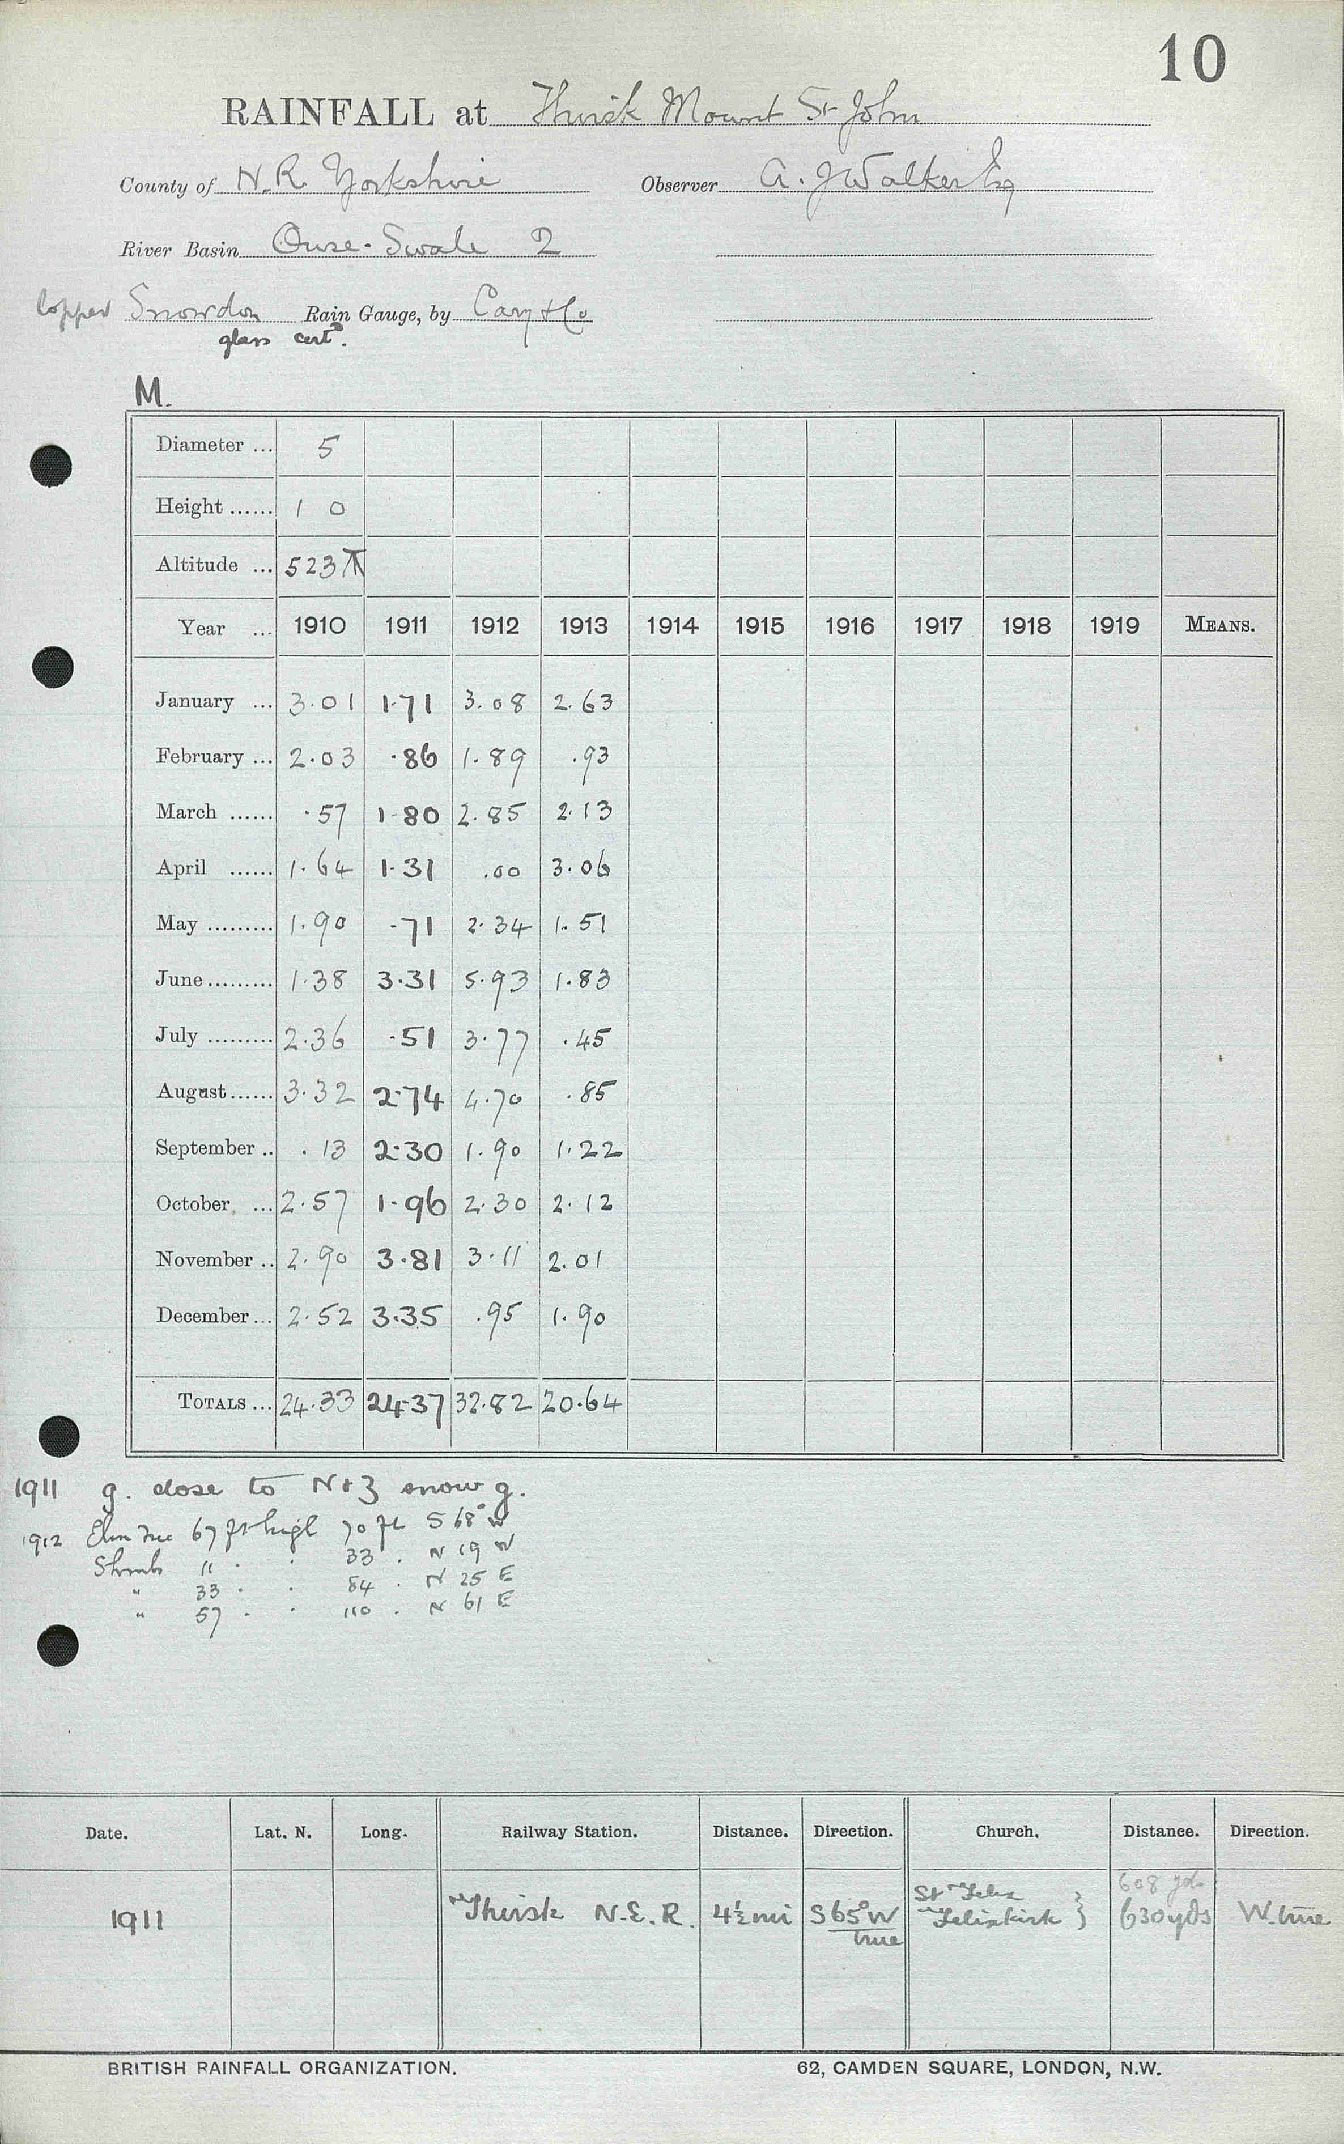 10
RAINFALL at Thirsk Mount St John
County of N.R. Yorkshire Observer A. J Walker Esq
River Basin Ouse-Swale 2
Copper Snowdon Rain Gauge, by Cary & Co
glass certd.
M.
Diameter ... 5
Height ...... 1 0
Altitude ... 523
Year ... 1910 1911 1912 1913 1914 1915 1916 1917 1918 1919 MEANS.
January ... 3.01 1.71 3.08 2.63
February ... 2.03 .86 1.89 .93
March ...... .57 1.80 2.85 2.13
April ...... 1.64 1.31 .00 3.06
May ......... 1.90 .71 2.34 1.51
June ......... 1.38 3.31 5.93 1.83
July ......... 2.36 .51 3.77 .45
August ...... 3.32 2.74 4.70 .85
September .. .13 2.30 1.90 1.22
October ... 2.57 1.96 2.30 2.12
November .. 2.90 3.81 3.11 2.01
December ... 2.52 3.35 .95 1.90
TOTALS ... 24.33 24.37 32.82 20.64
1911 g. close to N & 3 snow g.
1912 Elm Tree 67 ft high 70 ft S 68° W
Shrub 11 . . 33 . N 19 W
" 33 . . 84 . N 25 E
" 57 . . 110 . N 61 E
Date. Lat. N. Long. Railway Station. Distance. Direction. Church. Distance. Direction.
608 yds
1911 Thirsk N.E.R. 4½ mi S 65° W true St Felix Felixkirk } 630 yds W. true
BRITISH RAINFALL ORGANIZATION. 62, CAMDEN SQUARE, LONDON, N.W.